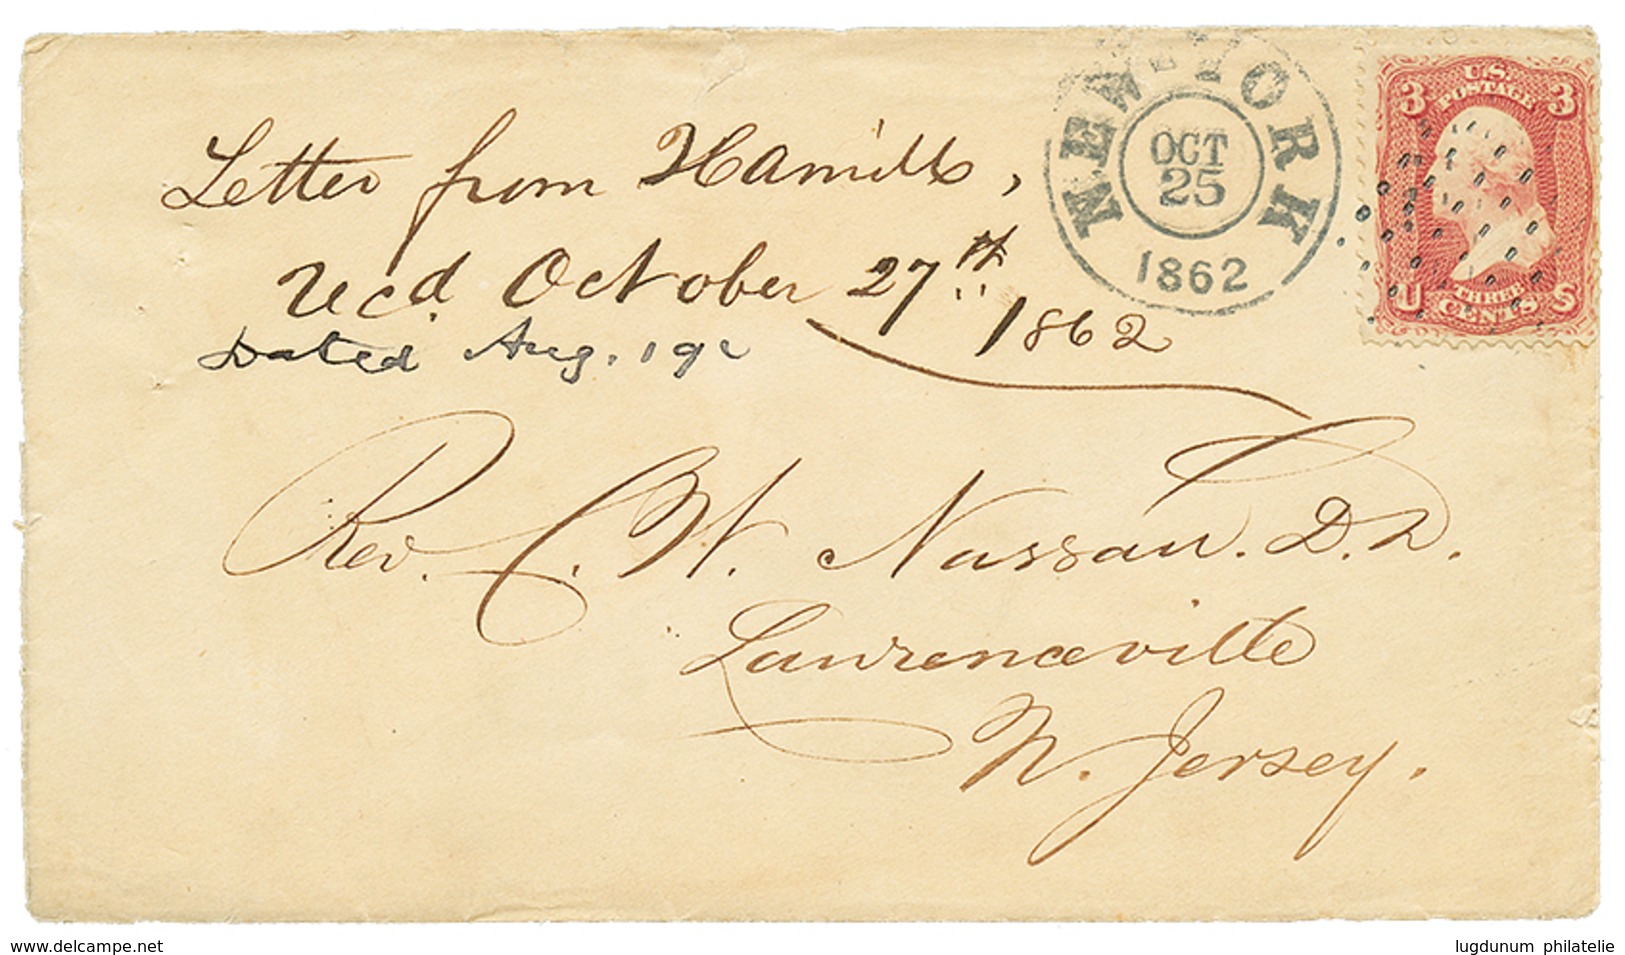 Letter from Hamill,
Recd. October 27th 1862
Dated Aug. 19
Rev. C. W. Nassau. D.D.
Lawrenceville
N. Jersey.
NEW-YORK
OCT
25
1862
U.S.
POSTAGE
3 3
THREE
CENTS
U S
www.delcampe.net
lugdunum philatelie